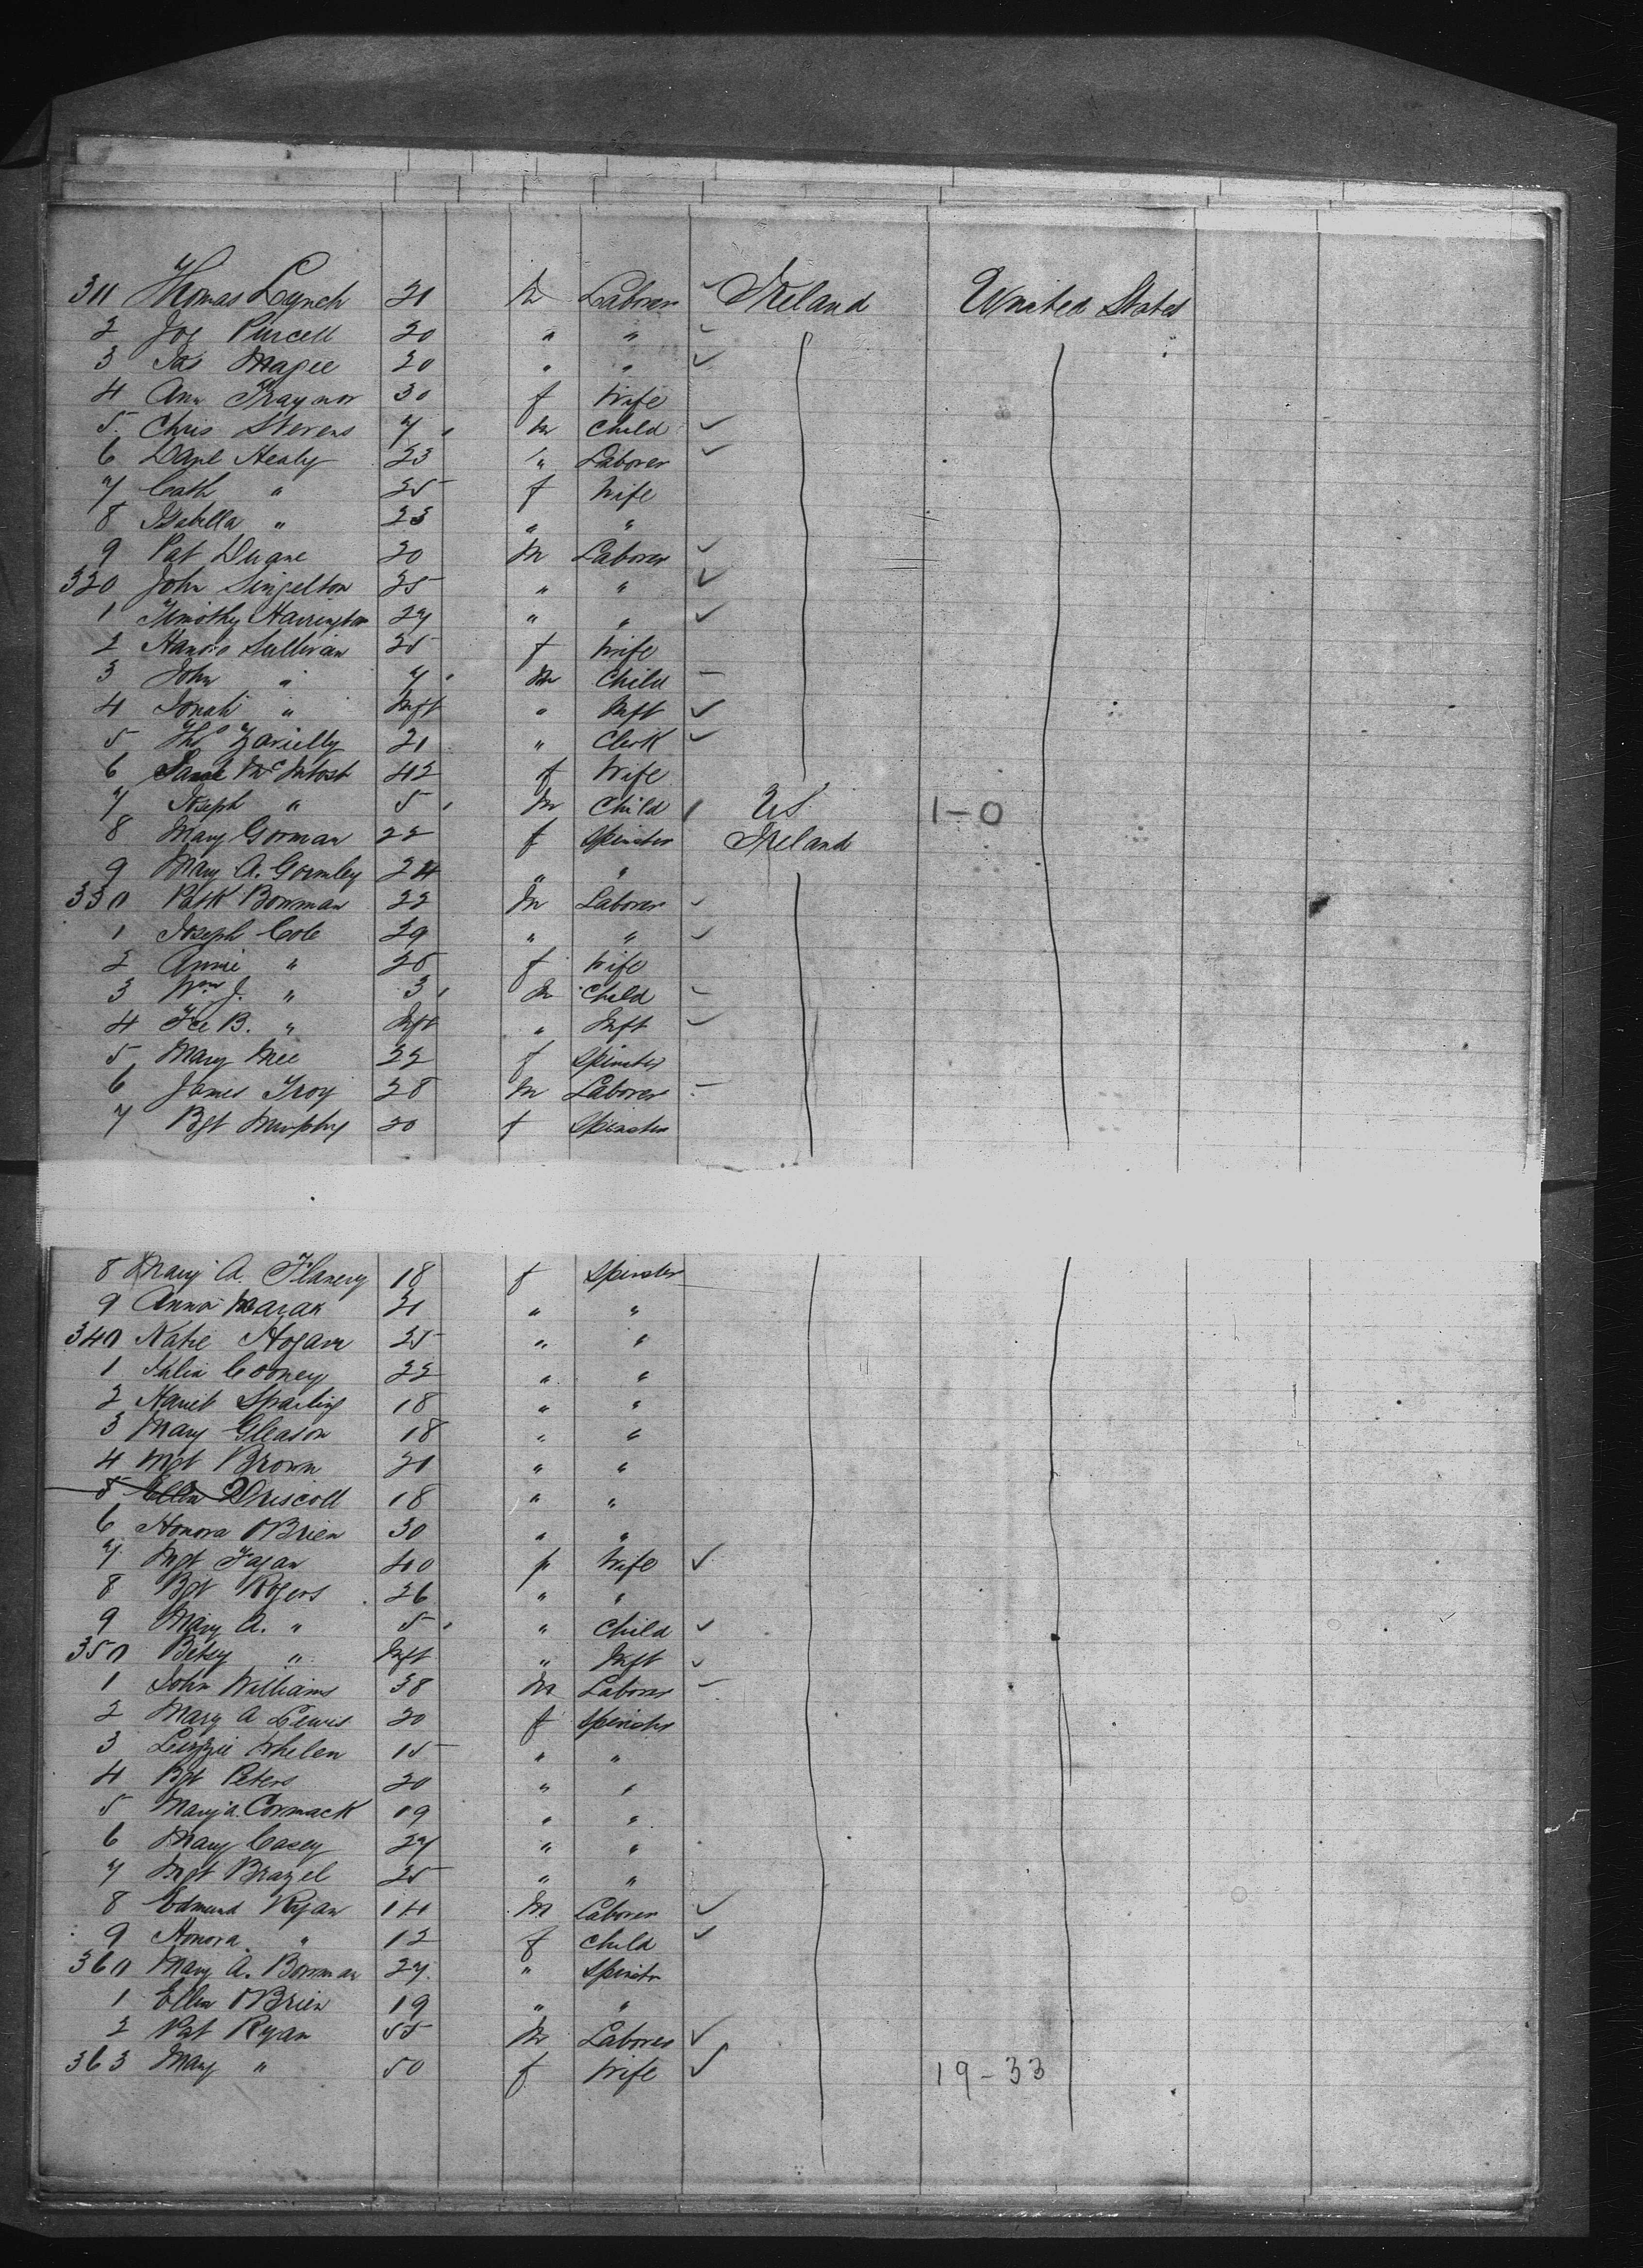 311 Thomas Lynch 21 m Laborer Ireland United States
2 Jos Purcell 20 " "
3 Jas Magee 20 " "
4 Ann Traynor 30 f Wife
5 Chris Stevens 7 m Child
6 Danl Healy 23 " Laborer
7 Cath " 25 f Wife
8 Isabella " 23 " "
9 Pat Duane 20 m Laborer
320 John Singelton 25 " "
1 Timothy Harrington 27 " "
2 Sullivan 25 f Wife
3 John " 7 m Child
4 " Inft " Inft
5 Thos 21 " Clerk
6 Sarah McIntosh 42 f Wife
7 Joseph " 5 m Child US 1-0
8 Mary Gorman 22 f Spinster Ireland
9 Mary A. Gormley 24 " "
330 Patk Bowman 22 m Laborer
1 Joseph Cole 29 " "
2 Annie " 26 f Wife
3 Wm J. " 3 m Child
4 B. " Inft " Inft
5 Mary Mee 22 f Spinster
6 James Troy 28 m Laborer
7 Bgt Murphy 20 f Spinster
8 Mary A. Flanery 18 f Spinster
9 Anna 21 " "
340 Katie Hogan 25 " "
1 Julia Cooney 22 " "
2 Harriet Sparling 18 " "
3 Mary Gleason 18 " "
4 Mgt Brown 21 " "
5 Ellen Driscoll 18 " "
6 Honora OBrien 30 " "
7 Mgt Fagan 40 f Wife
8 Bgt Rogers 26 " "
9 Mary A. " 5 " Child
350 Betsy " Inft " Inft
1 John Williams 38 m Laborer
2 Mary A Lewis 20 f Spinster
3 Lizzie Whelen 15 " "
4 Bgt Peters 20 " "
5 Mary A. Cormack 19 " "
6 Mary Casey 27 " "
7 Mgt Brazel 25 " "
8 Edmund Ryan 14 m Laborer
9 Honora " 12 f Child
360 Mary A. Bowman 27 " Spinstr
1 Ellen OBrien 19 " "
2 Pat Ryan 55 m Laborer
363 Mary " 50 f Wife 19-33